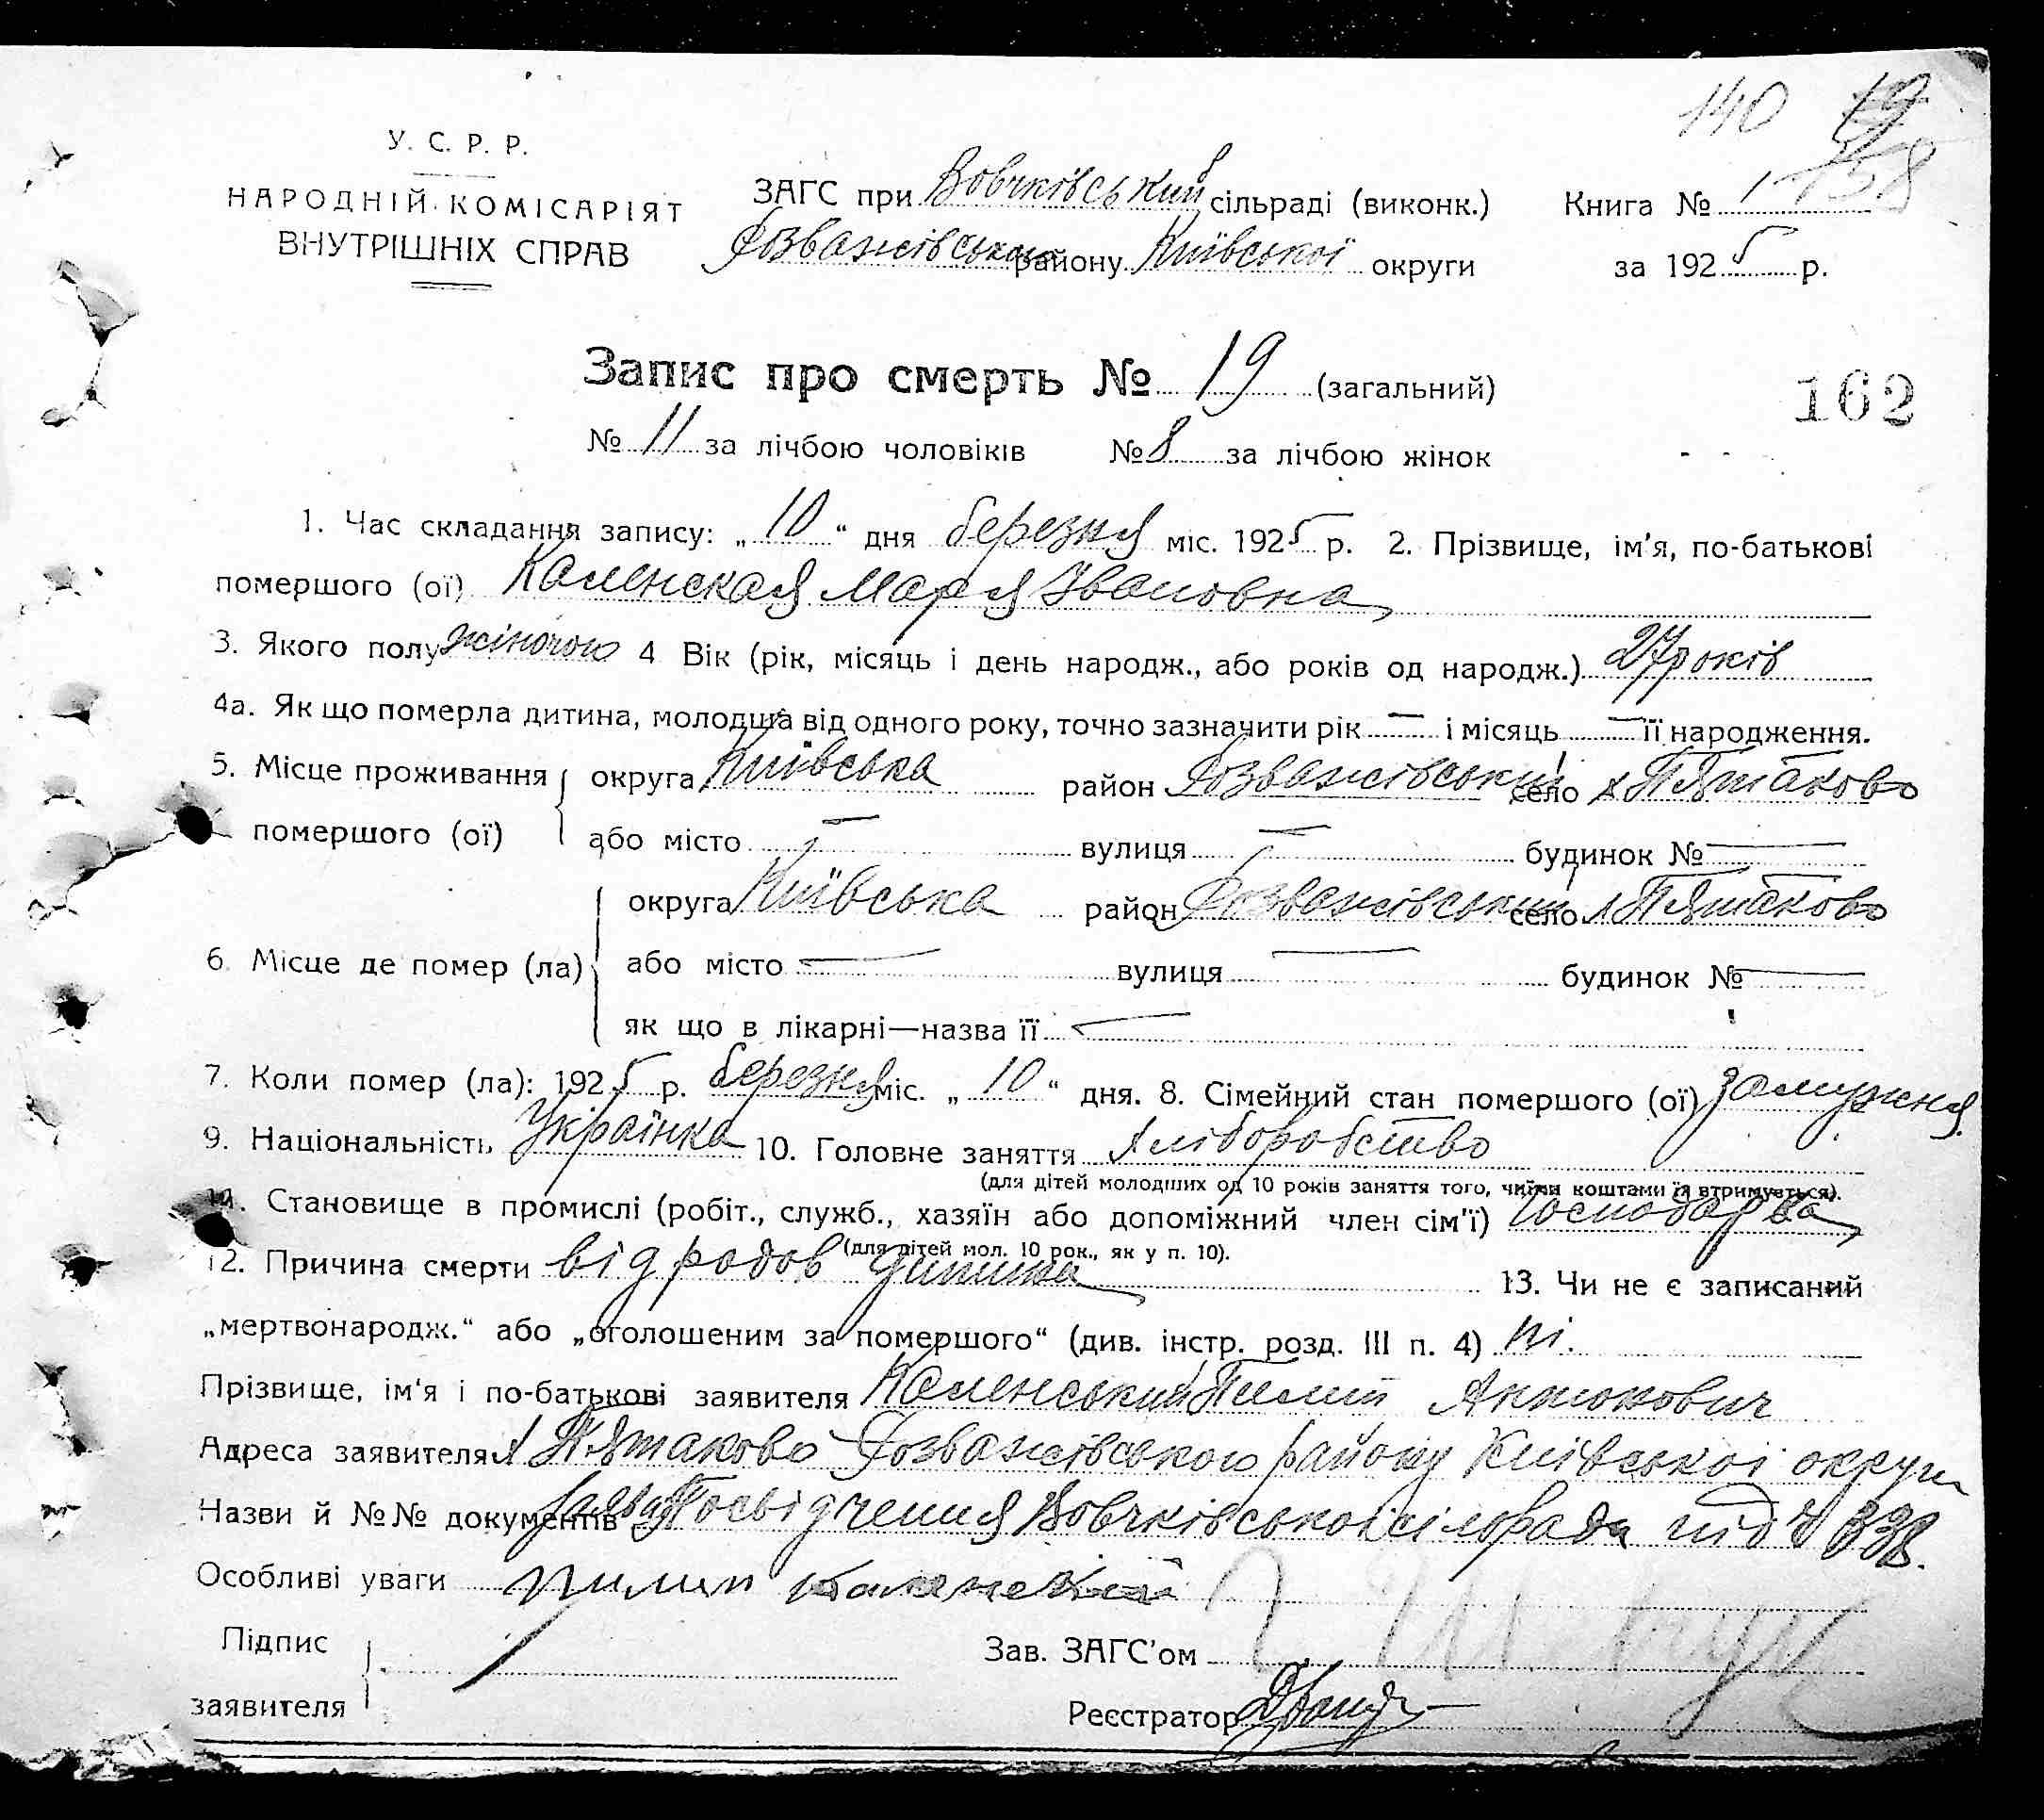 140 19
158
У. С. Р. Р.
НАРОДНІЙ КОМІСАРІЯТ
ВНУТРІШНІХ СПРАВ
ЗАГС при Вовчківський сільраді (виконк.)
Розважівського району Київської округи
Книга № 1
за 1925 р.
Запис про смерть № 19 (загальний)
162
№ 11 за лічбою чоловіків № 8 за лічбою жінок
1. Час складання запису: „10“ дня березня міс. 1925 р. 2. Прізвище, ім'я, по-батькові
помершого (ої) Каменская Марія Ивановна
3. Якого полу жіночого 4 Вік (рік, місяць і день народж., або років од народж.) 27 років
4а. Як що померла дитина, молодша від одного року, точно зазначити рік — і місяць — її народження.
5. Місце проживання округа Київська район Розважівський село х Пятаково
помершого (ої) або місто — вулиця — будинок № —
округа Київська район Розважівський село х Пятаково
6. Місце де помер (ла) або місто — вулиця — будинок № —
як що в лікарні—назва її —
7. Коли помер (ла): 1925 р. березня міс. „10“ дня. 8. Сімейний стан помершого (ої) замужня
9. Національність Українка 10. Головне заняття хліборобство
(для дітей молодших од 10 років заняття того, чиїми коштами їх втримується).
11. Становище в промислі (робіт., служб., хазяїн або допоміжний член сім'ї) господарка
(для дітей мол. 10 рок., як у п. 10).
12. Причина смерти від родов 13. Чи не є записаний
„мертвонародж.“ або „оголошеним за помершого“ (див. інстр. розд. III п. 4) ні.
Прізвище, ім'я і по-батькові заявителя Каменський Пилип Антонович
Адреса заявителя х Пятаково Розважівського району Київської округи
Назви й №№ документів Посвідчення Вовчківської сілоради під № 338.
Особливі уваги пилип каменский
Підпис
заявителя
Зав. ЗАГС'ом
Реєстратор